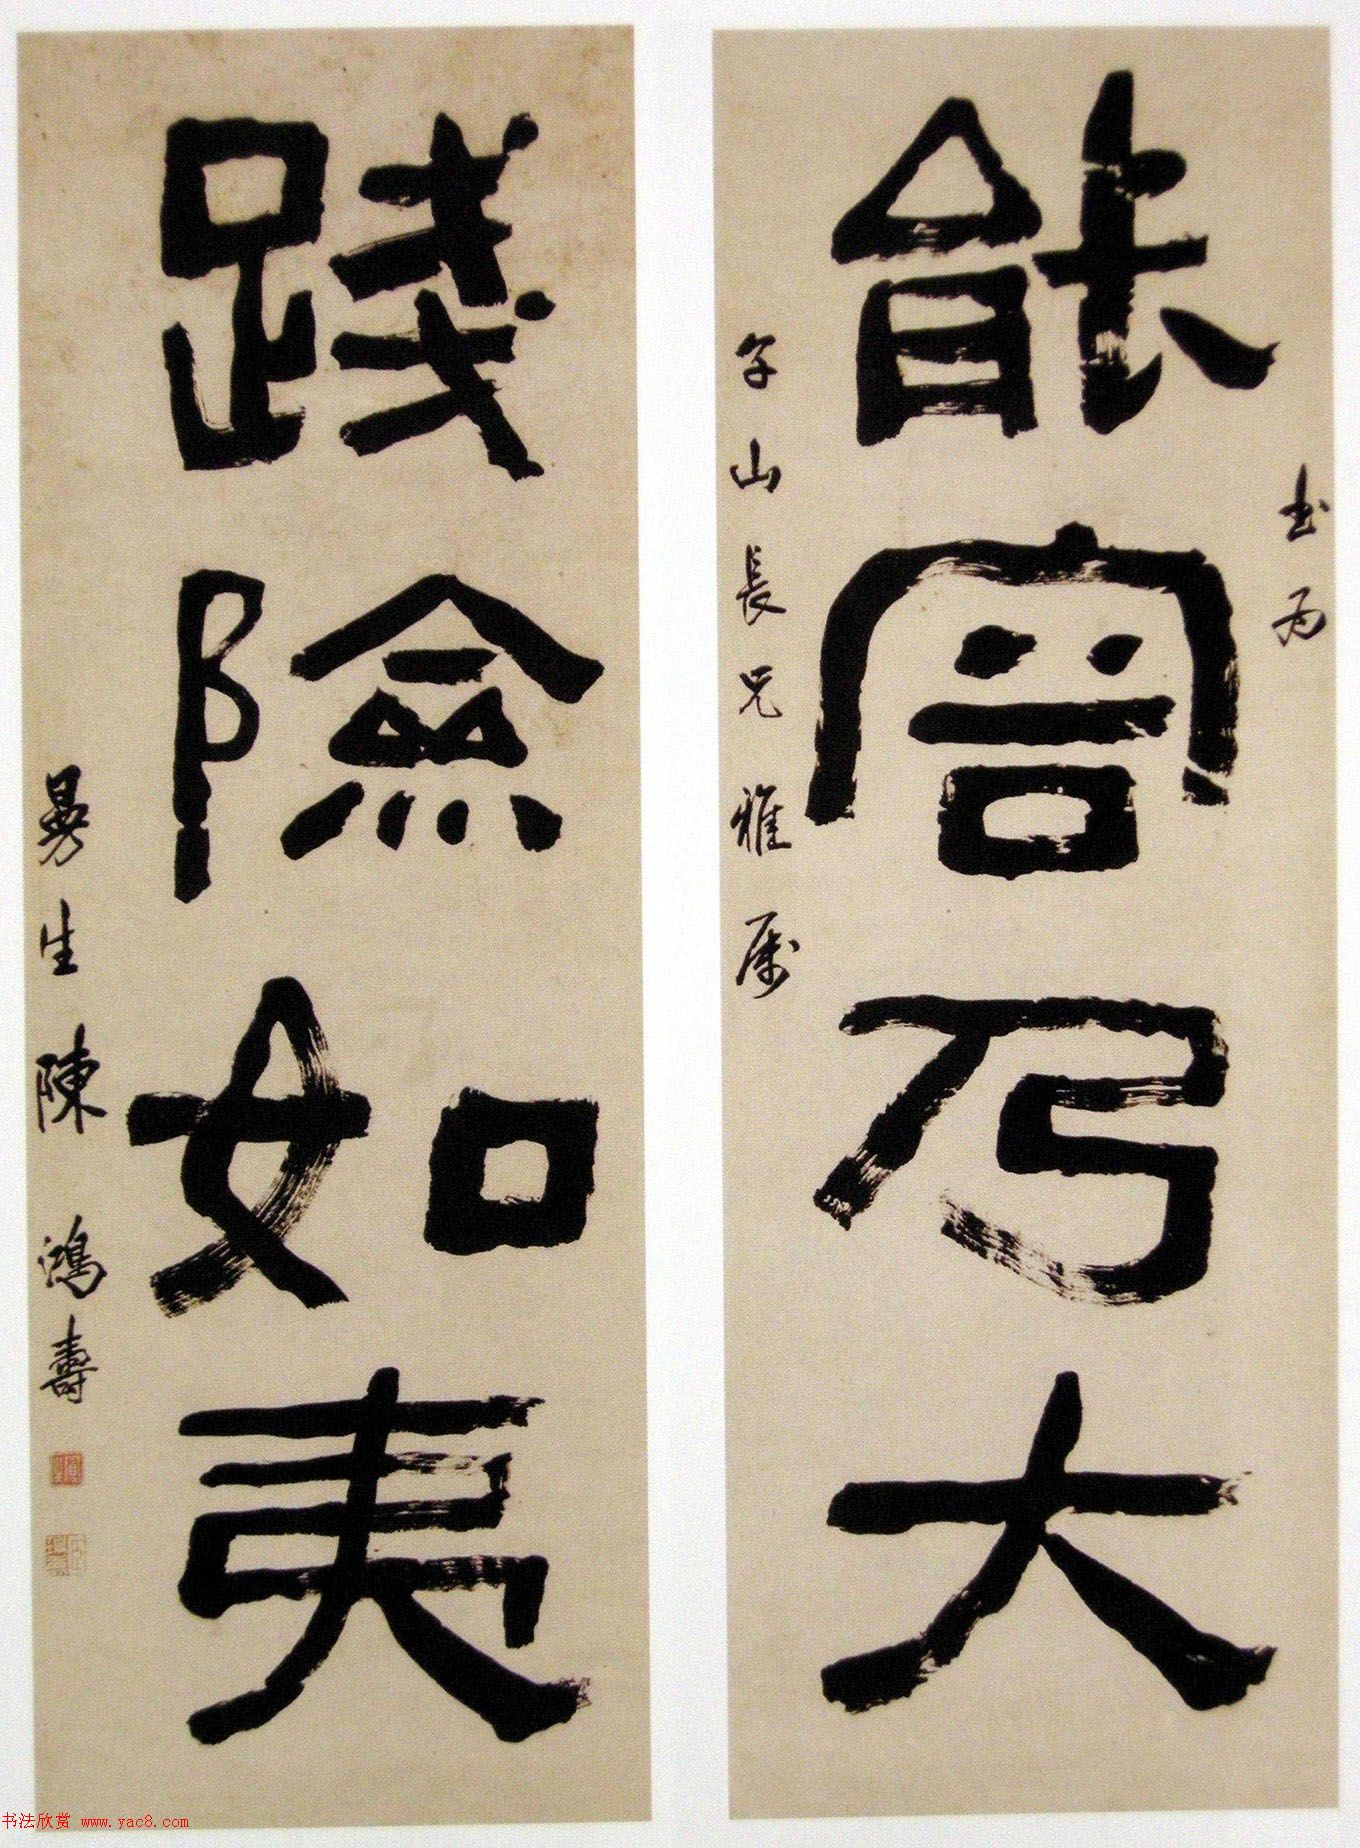 能容乃大
書為
午山長兄雅屬
踐險如夷
曼生陳鴻壽
书法欣赏 www.yac8.com